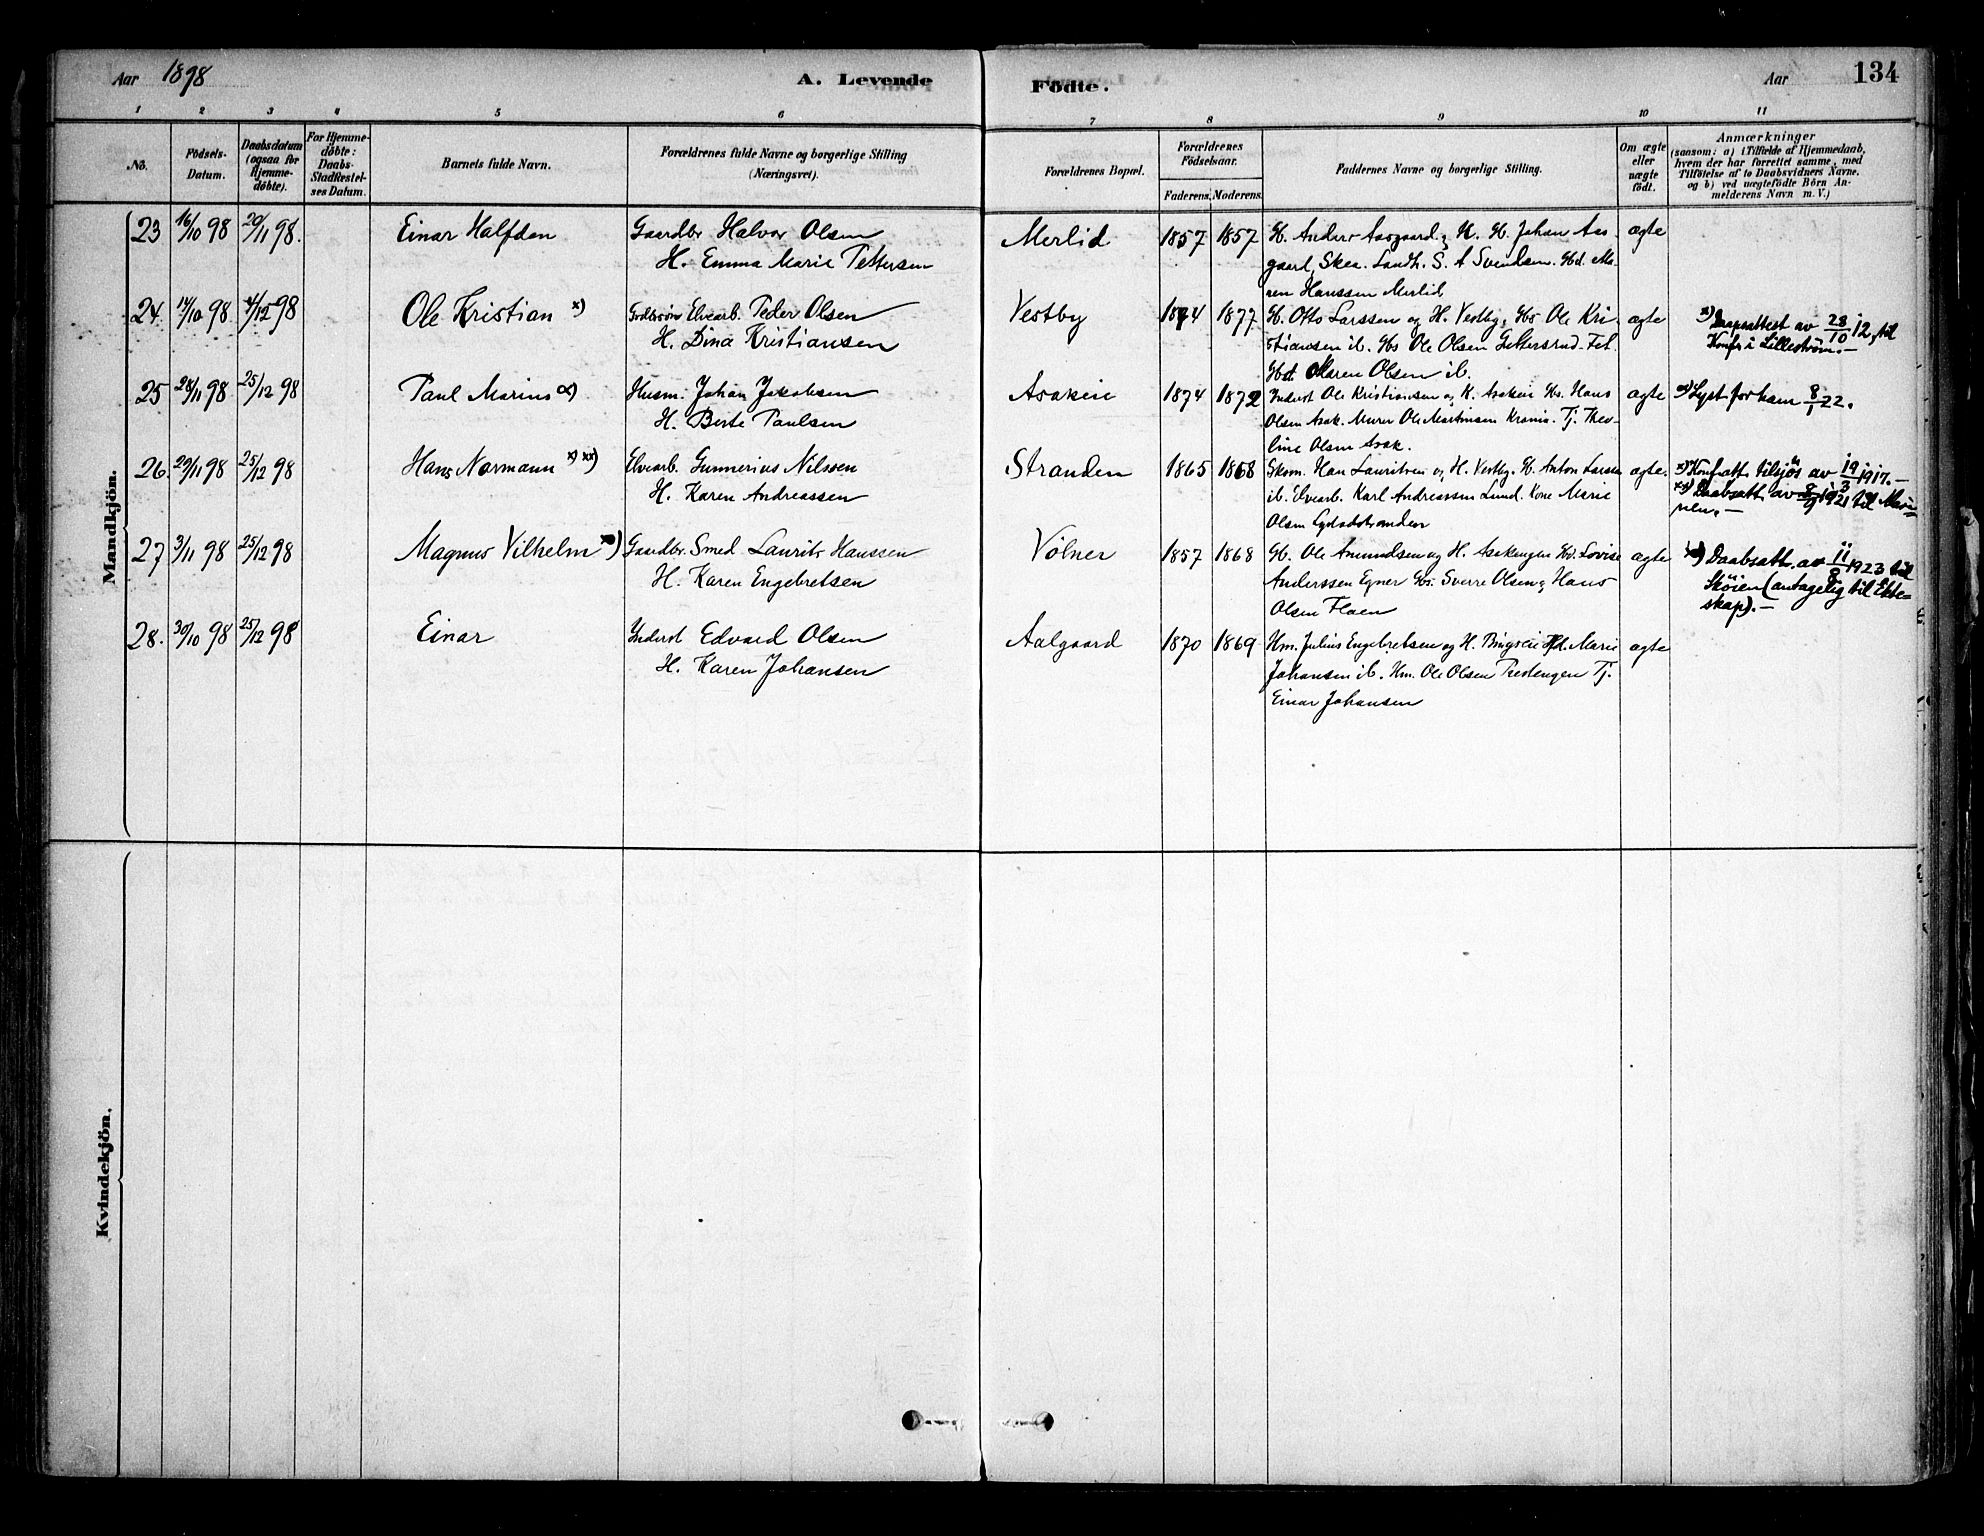 Aar 1898
A. Levende
Födte.
Aar
134
1 2 3 4 5 6 7 8 9 10 11
No.
Födsels-
Datum.
Daabsdatum
(ogsaa for
Hjemme-
döbte).
For Hjemme-
döbte:
Daabs-
Stadfæstel-
ses Datum.
Barnets fulde Navn.
Forældrenes fulde Navne og borgerlige Stilling
(Næringsvei).
Forældrenes Bopæl.
Forældrenes
Födselsaar.
Faderens. Moderens.
Faddernes Navne og borgerlige Stilling.
Om ægte
eller
uægte
födt.
Anmærkninger
(saasom: a) i Tilfælde af Hjemmedaab,
hvem der har forrettet samme, med
Tilföielse af to Daabsvidners Navne,
og b) ved uægtefödte Börn An-
melderens Navn m. V.)
Mandkjön.
23 16/10 98 20/11 98. Einar Halfdan Gaardbr Halvor Olsen Merlid 1857 1857 G. Anders Aasgaard, K. G. Johan Aas- ægte
H. Emma Marie Pettersen
gaard, Skea. Landh. S. A Svendsen. Gd. Ma-
ren Hanssen Merlid
24 14/10 98 4/12 98 Ole Kristian x) Elvearb. Peder Olsen Vestby 1874 1877 G. Otto Larssen og H. Vestby, Gs Ole Kri- ægte
H. Dina Kristiansen
stiansen ib. Gs Ole Olsen Gettersrud. Fet.
Gd. Maren Olsen ib.
x) Daapsattest av 28/10 12, til
Konfr i Lilleström.-
25 28/11 98 25/12 98 Paul Marius x) Husm. Johan Jakobsen Asakeie 1874 1872 Inderst Ole Kristiansen og K. Asakeie Gs. Hans ægte
H. Berte Paulsen
Olsen Asak. Murer Ole Martinsen Krania. Tj. Theo-
line Olsen Asak.
x) Lyst for ham 8/1 22.
26. 29/11 98 25/12 98 Hans Normann x) xx) Elvearb. Gunnerius Nilssen Stranden 1865 1868 Skom. Han Lauritsen og H. Vestby. G. Anton Larsen ægte.
H. Karen Andreassen
ib. Elvearb. Karl Andreassen Lund. Kone Marie
Olsen
x) Konf.att. tilsjös av 19/3 1917.-
xx) Daabsatt. av 8/9 1921 til Mari-
nen.-
27 3/11 98 25/12 98 Magnus Vilhelm x) Gaardbr. Smed Laurits Hanssen Völner 1857 1868 Gb. Ole Amundsen og H. Asakengen Gd. Lovise ægte
H. Karen Engebretsen
Anderssen Egner Gs. Sverre Olsen, Hans
Olsen Flaen
x) Daabsatt. av 11/8 1923 til
Skøien (antagelig til Ekte-
skap).-
28. 30/10 98 25/12 98 Einar Inderst Edvard Olsen Aalgaard 1870 1869 Hm. Julius Engebretsen og H. Bingseie Hd. Marie ægte
H. Karen Johansen
Johansen ib. Hm. Ole Olsen Trestengen Tj.
Einar Johansen
Kvindekjön.